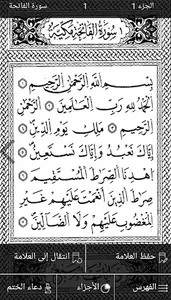 الجزء 1 1 سورة الفاتحة
سُورَةُ الْفَاتِحَةِ مَكِّيَّةٌ
بِسْمِ اللّٰهِ الرَّحْمٰنِ الرَّحِيْمِ
اَلْحَمْدُ لِلّٰهِ رَبِّ الْعٰلَمِيْنَ الرَّحْمٰنِ
الرَّحِيْمِ مٰلِكِ يَوْمِ الدِّيْنِ
اِيَّاكَ نَعْبُدُ وَاِيَّاكَ نَسْتَعِيْنُ
اِهْدِنَا الصِّرَاطَ الْمُسْتَقِيْمَ
صِرَاطَ الَّذِيْنَ اَنْعَمْتَ عَلَيْهِمْ غَيْرِ
الْمَغْضُوْبِ عَلَيْهِمْ وَلَا الضَّآلِّيْنَ
حفظ العلامة انتقال إلى العلامة
الفهرس الأجزاء دعاء الختم